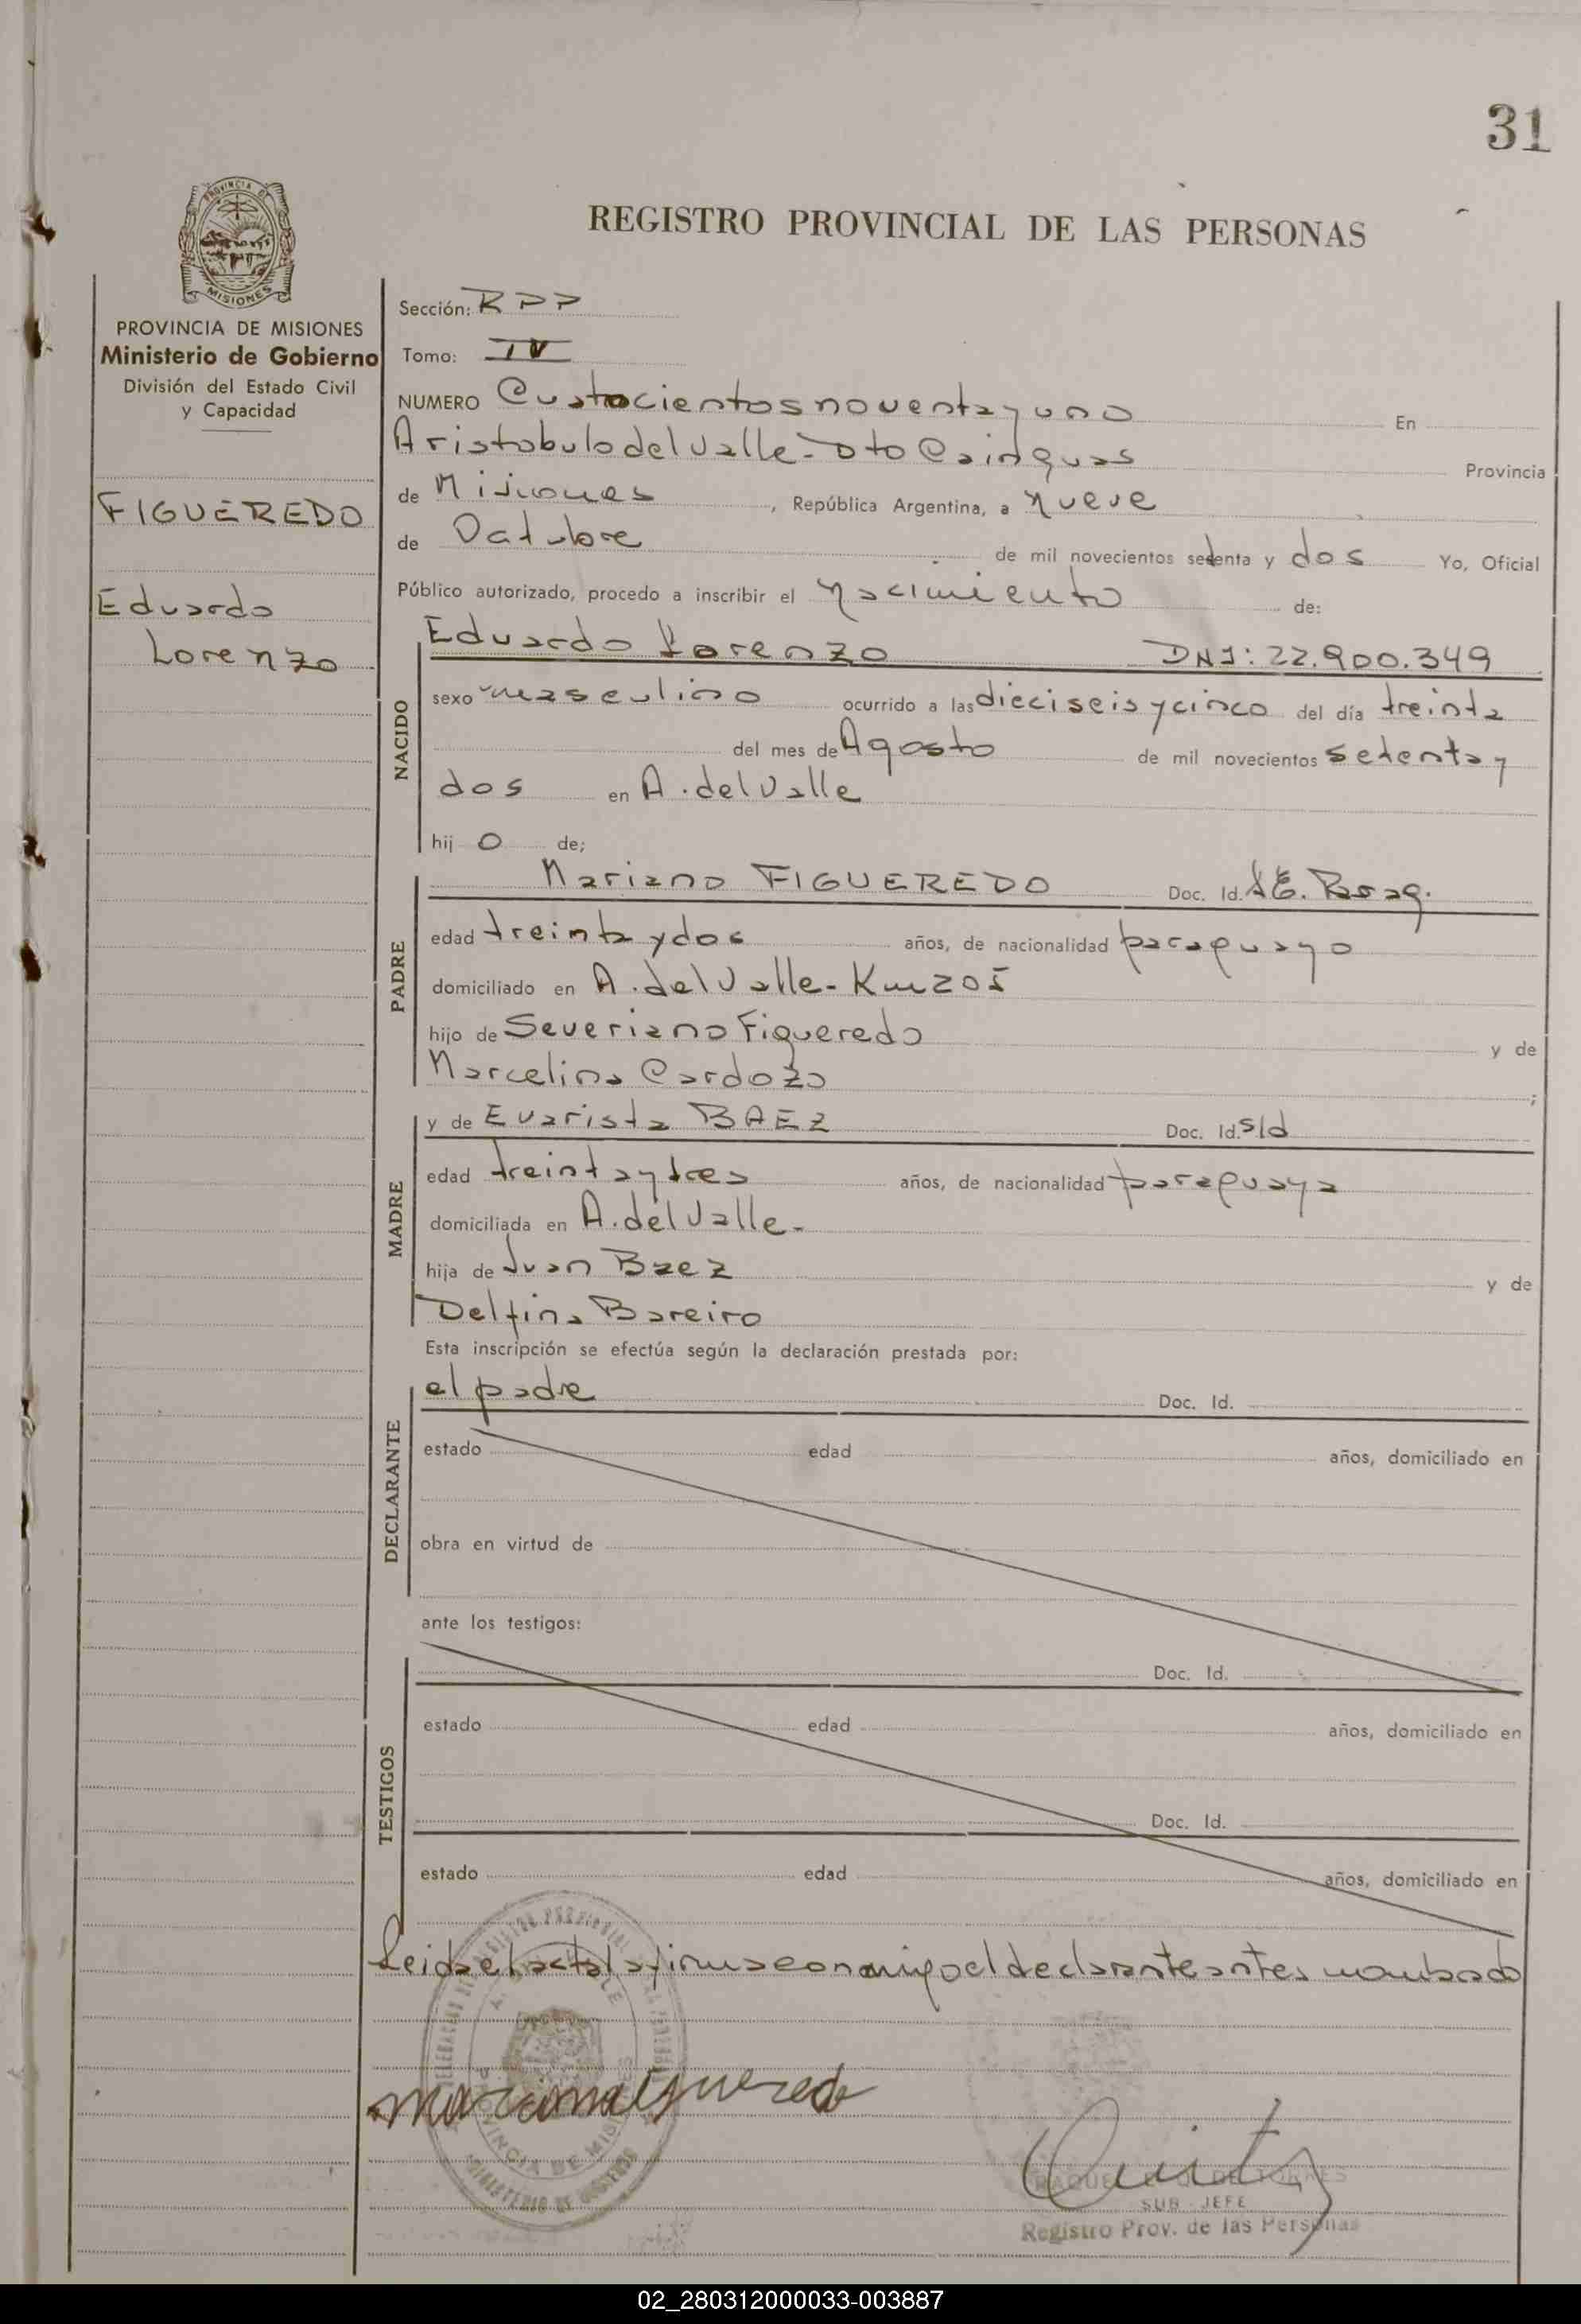 31
REGISTRO PROVINCIAL DE LAS PERSONAS
PROVINCIA DE
MISIONES
PROVINCIA DE MISIONES
Ministerio de Gobierno
División del Estado Civil
y Capacidad
FIGUEREDO
Eduardo
Lorenzo
Sección: RPP
Tomo: IV
NUMERO Cuatrocientos noventa y uno En
Aristobulo del Valle - Dto Cainguas Provincia
de Misiones, República Argentina, a nueve
de Octubre de mil novecientos setenta y dos Yo, Oficial
Público autorizado, procedo a inscribir el nacimiento de:
NACIDO
Eduardo Lorenzo DNI: 22.900.349
sexo masculino ocurrido a las dieciseis y cinco del día treinta
del mes de Agosto de mil novecientos setenta y
dos en A. del Valle
hij o de;
PADRE
Mariano FIGUEREDO Doc. Id. Parag.
edad treinta y dos años, de nacionalidad paraguayo
domiciliado en A. del Valle - Km 205
hijo de Severiano Figueredo y de
Marcelina Cardozo ;
MADRE
y de Evarista BAEZ Doc. Id. s/d
edad treinta y tres años, de nacionalidad paraguaya
domiciliada en A. del Valle -
hija de Juan Baez y de
Delfina Bareiro
Esta inscripción se efectúa según la declaración prestada por:
DECLARANTE
el padre Doc. Id.
estado edad años, domiciliado en
obra en virtud de
ante los testigos:
TESTIGOS
Doc. Id.
estado edad años, domiciliado en
Doc. Id.
estado edad años, domiciliado en
Leida el acta la firma conmigo el declarante antes nombrado
PROVINCIA DE MISIONES
RAQUEL DE TORRES
SUB - JEFE
Registro Prov. de las Personas
02_280312000033-003887